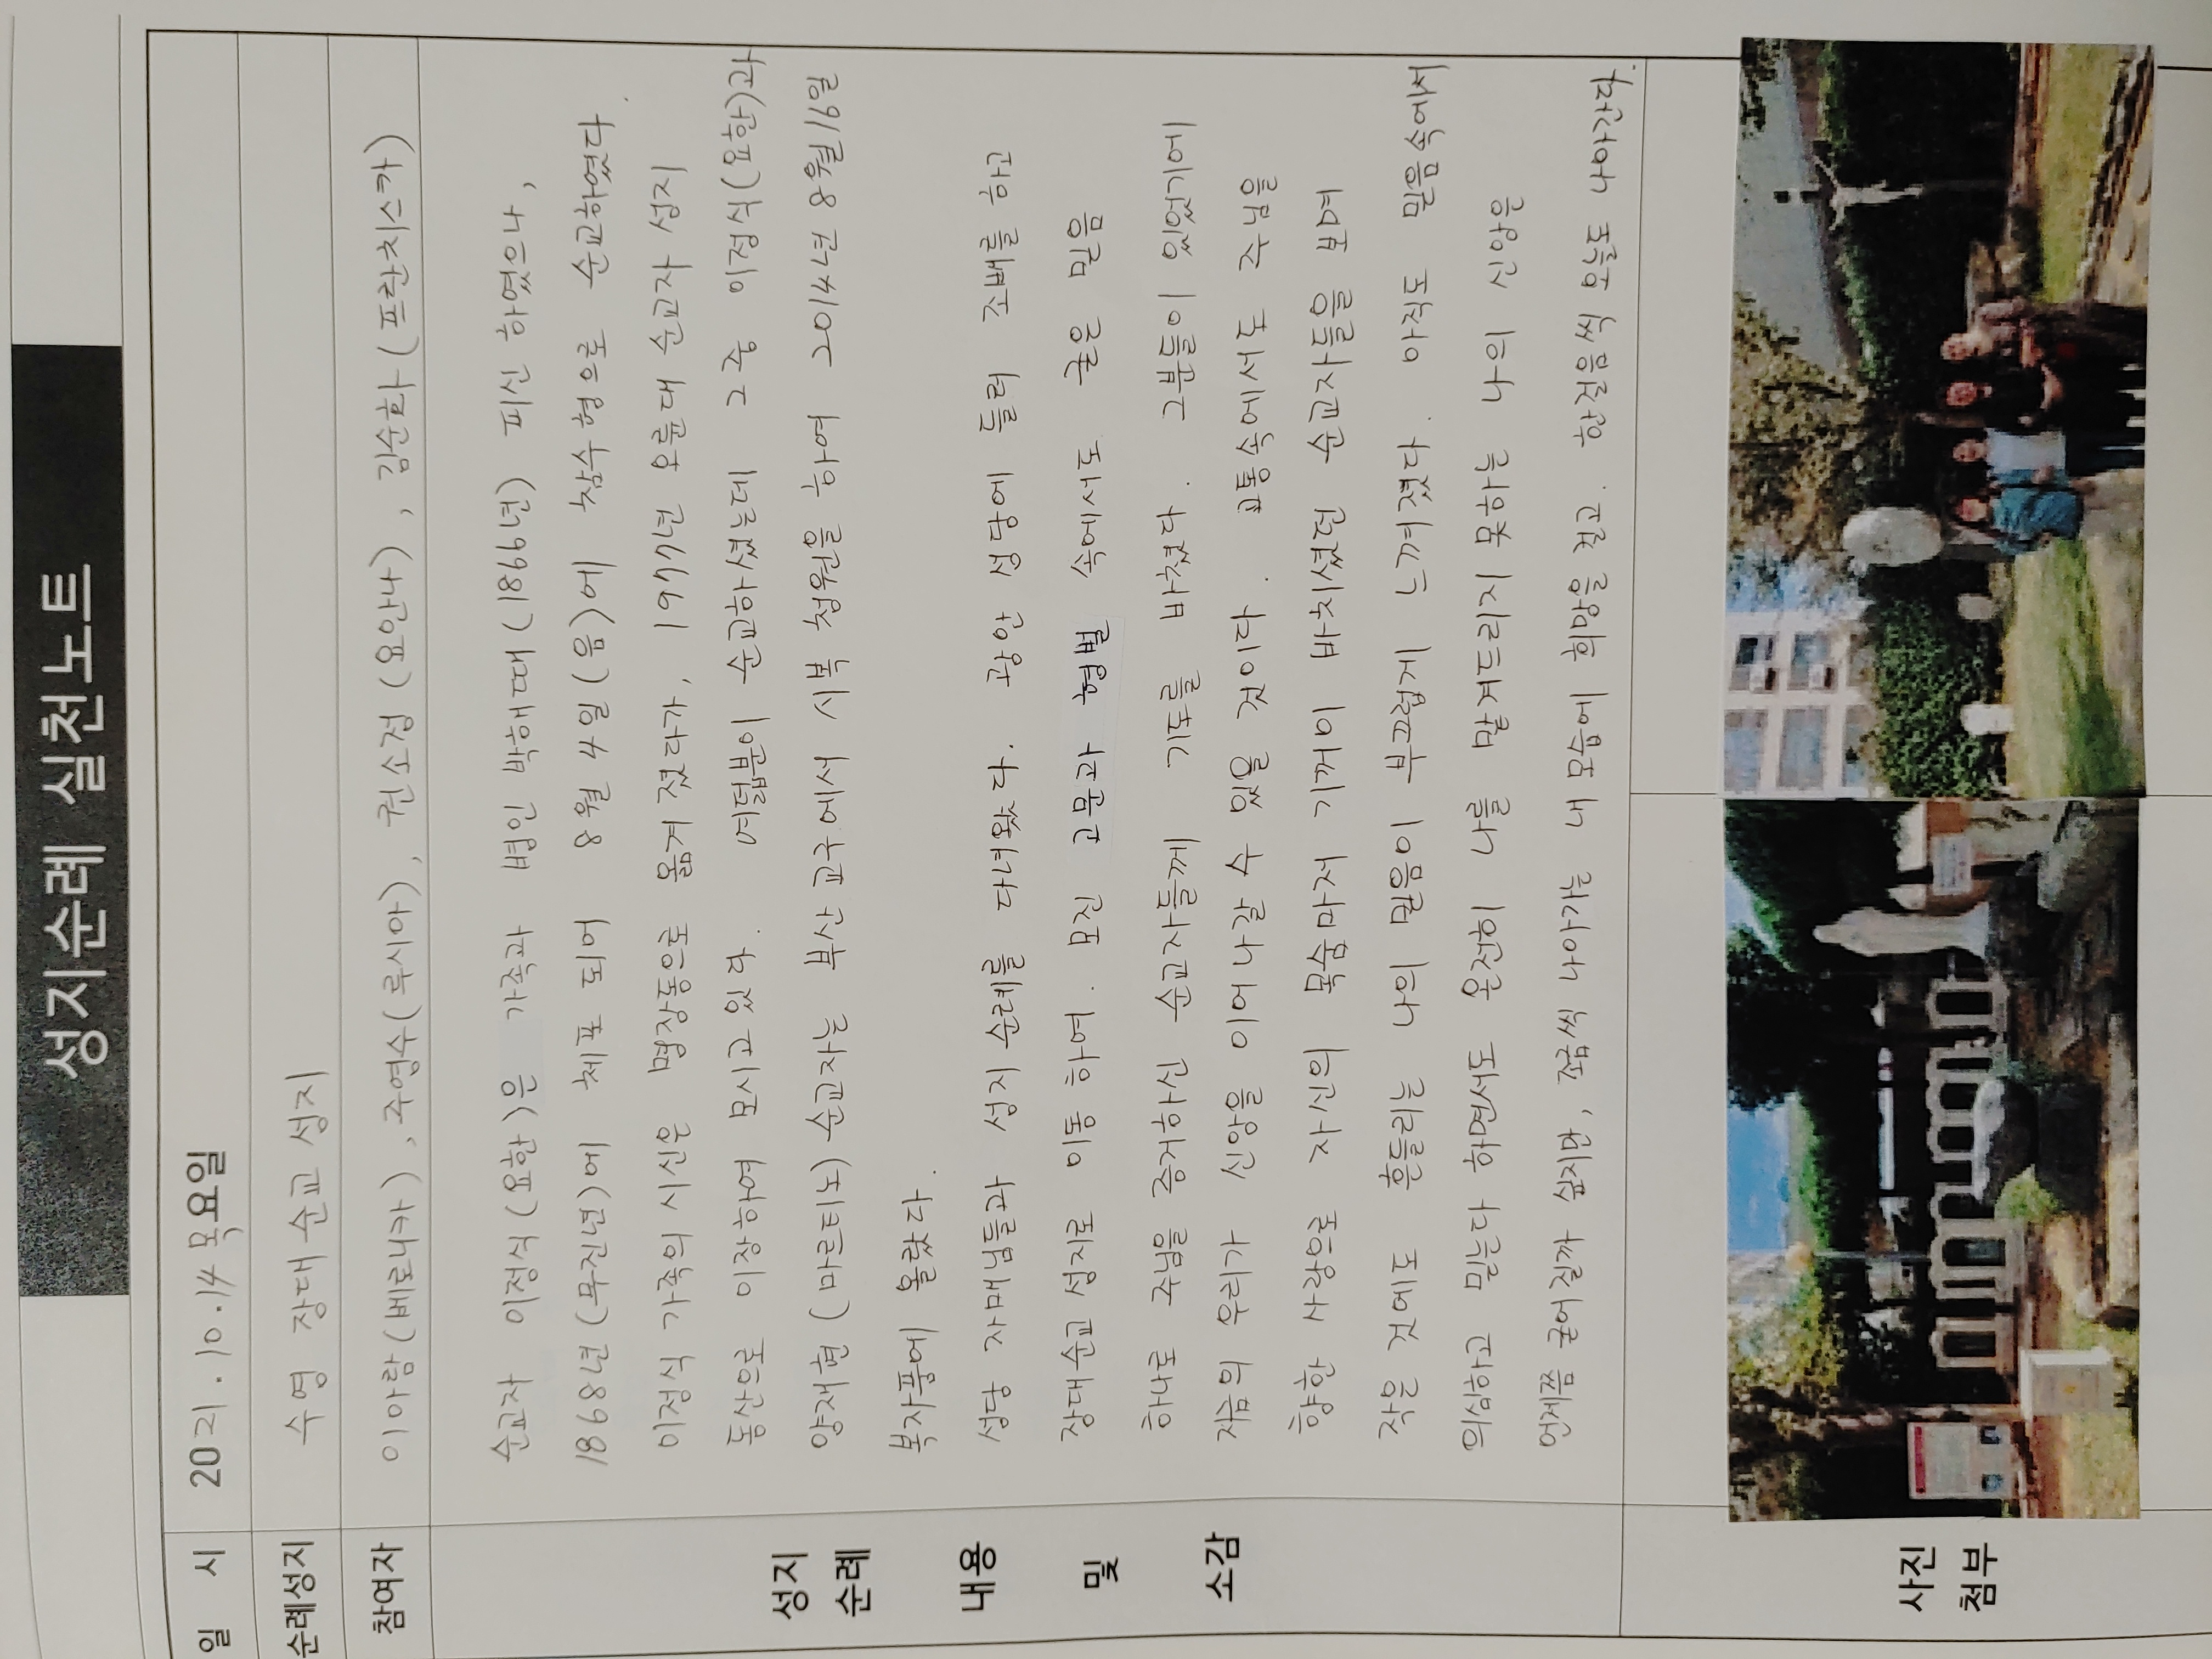 성지순례 실천노트
일 시 2021.10.14 목요일
순례성지 수영 장대 순교 성지
참여자 이아람(베로니카), 주영수(루시아), 권소정(요안나), 김순화(프란치스카)
성지
순례
내용
및
소감
순교자 이정식(요한)은 가족과 병인 박해때(1866년) 피신 하였으나,
1868년(무진년)에 체포 되어 8월 4일(음)에 참수형으로 순교하였다.
이정식 가족의 시신은 명장동으로 옮겨 졌다가, 1977년 오륜대 순교자 성지
동산으로 이장하여 모시고 있다. 여덟분이 순교하셨는데 그중 이정식(요한)과
양재현(마르티노) 순교자는 부산 교구에서 시복 청원을 하여 2014년 8월 16일
복자품에 올랐다.
성당 자매님들과 성지 순례를 다녀왔다. 광안 성당에 들러 조배를 하고
장대순교 성지로 이동 하여. 모진 고문과 형벌 속에서도 굳은 믿음
하나로 주님을 증거하신 순교자들께 기도를 바쳤다. 그분들이 있었기에
지금의 우리가 신앙을 이어 나갈 수 있을 것이다. 고통속에서도 주님을
향한 사랑으로 자신의 목숨마저 기꺼이 바치셨던 순교자들을 보며
작은 것에도 흔들리는 나의 믿음이 부끄럽게 느껴졌다. 아직도 믿음속에서
의심하고 믿는다 하면서도 온전히 나를 맡겨드리지 못하는 나의 신앙은
언제쯤 굳어질까 싶지만, 조금씩 나아가는 내 모습에 희망을 걸고. 한걸음 씩 오늘도 나아간다.
사진
첨부